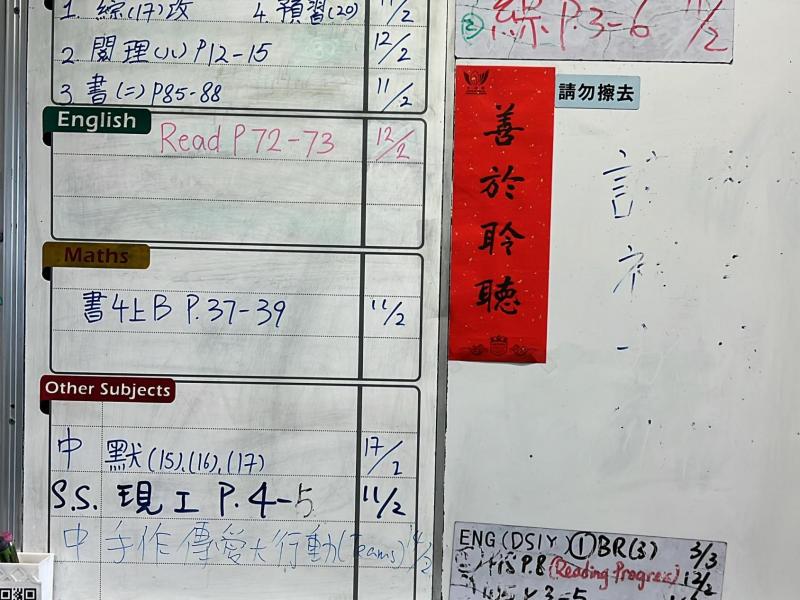 1. 綜(17)改 4. 預習(20) 11/2
2. 閱理(八) P12-15 12/2
3. 書(二) P85-88 11/2
English
Read P 72-73 12/2
Maths
書4上B P.37-39 11/2
Other Subjects
中 默(15),(16),(17) 17/2
S.S. 現工 P.4-5 11/2
中 手作傳愛大行動(Teams) 14/2
② 綜 P.3-6 11/2
請勿擦去
善於聆聽
ENG (DSIY) ① BR(3) 3/3
P8 (Reading Progress) 12/2